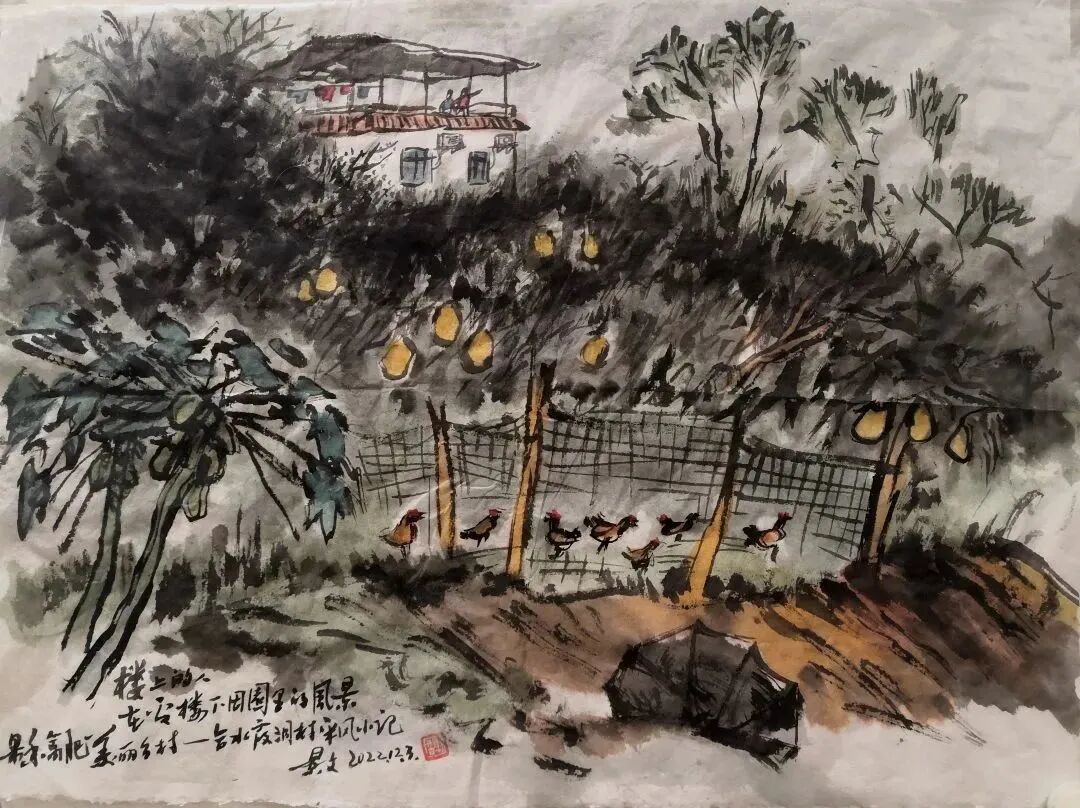 楼上的人
在看楼下田园里的风景
美丽乡村—合水度洞村采风小记
文 2022.12.3.